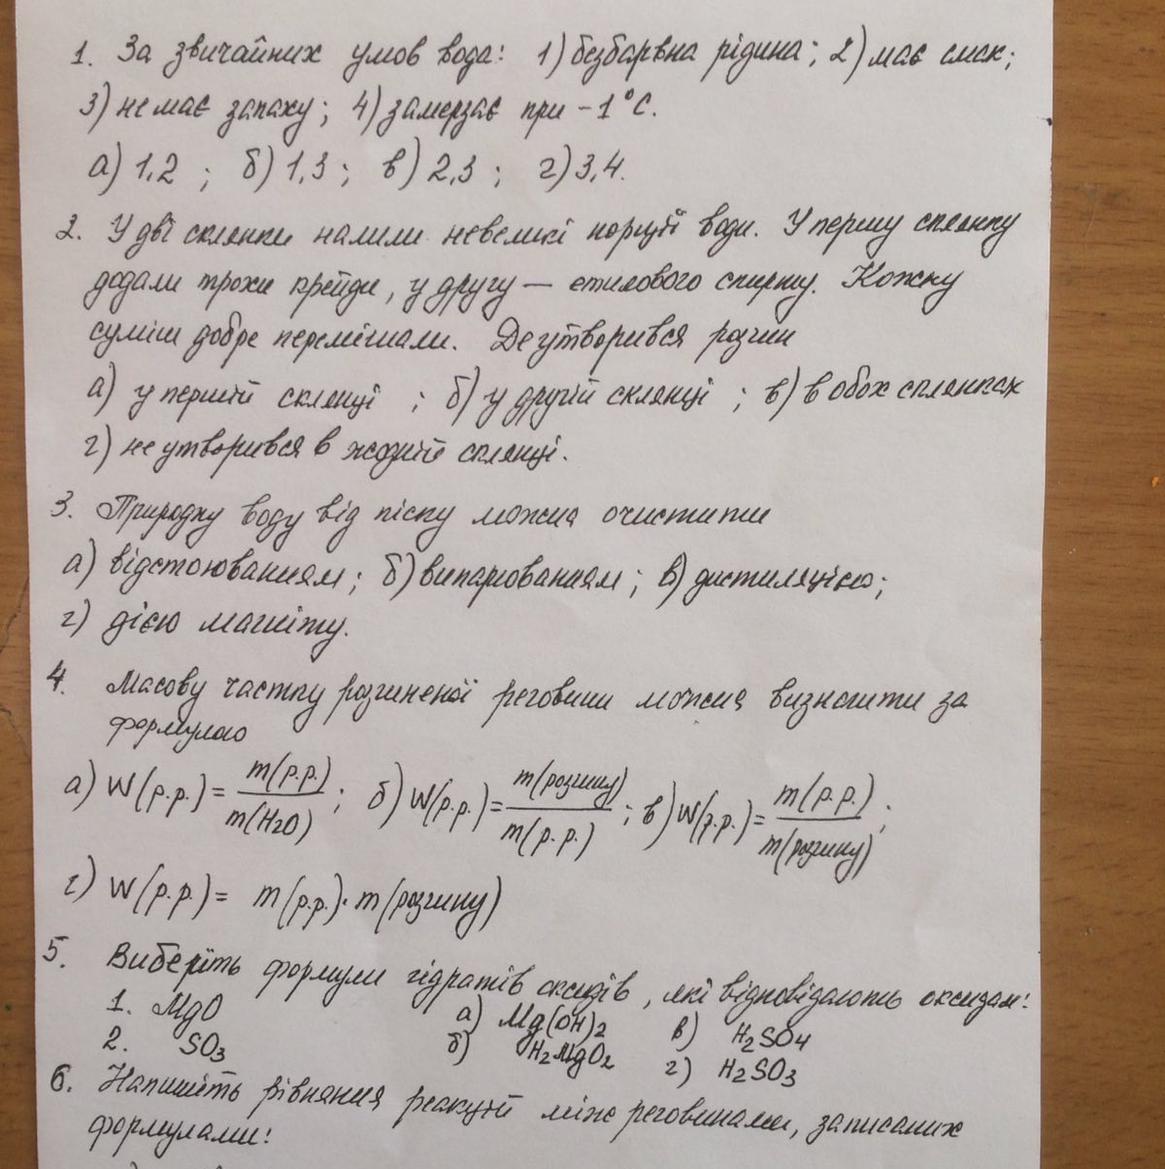 1. За звичайних умов вода: 1) безбарвна рідина; 2) має смак;
3) не має запаху; 4) замерзає при -1°С.
а) 1,2 ; б) 1,3 ; в) 2,3 ; г) 3,4.
2. У дві склянки налили невеликі порції води. У першу склянку
додали трохи крейди, у другу — етилового спирту. Кожну
суміш добре перемішали. Де утворився розчин
а) у першій склянці ; б) у другій склянці ; в) в обох склянках
г) не утворився в жодній склянці.
3. Природну воду від піску можна очистити
а) відстоюванням; б) випарюванням; в) дистиляцією;
г) дією магніту.
4. Масову частку розчиненої речовини можна визначити за
формулою
а) W(р.р.) = m(р.р.) / m(H2O) ; б) W(р.р.) = m(розчину) / m(р.р.) ; в) W(р.р.) = m(р.р.) / m(розчину) ;
г) W(р.р.) = m(р.р.) · m(розчину)
5. Виберіть формули гідратів оксидів, які відповідають оксидам:
1. MgO а) Mg(OH)2 в) H2SO4
2. SO3 б) H2MgO2 г) H2SO3
6. Напишіть рівняння реакцій між речовинами, записаних
формулами: